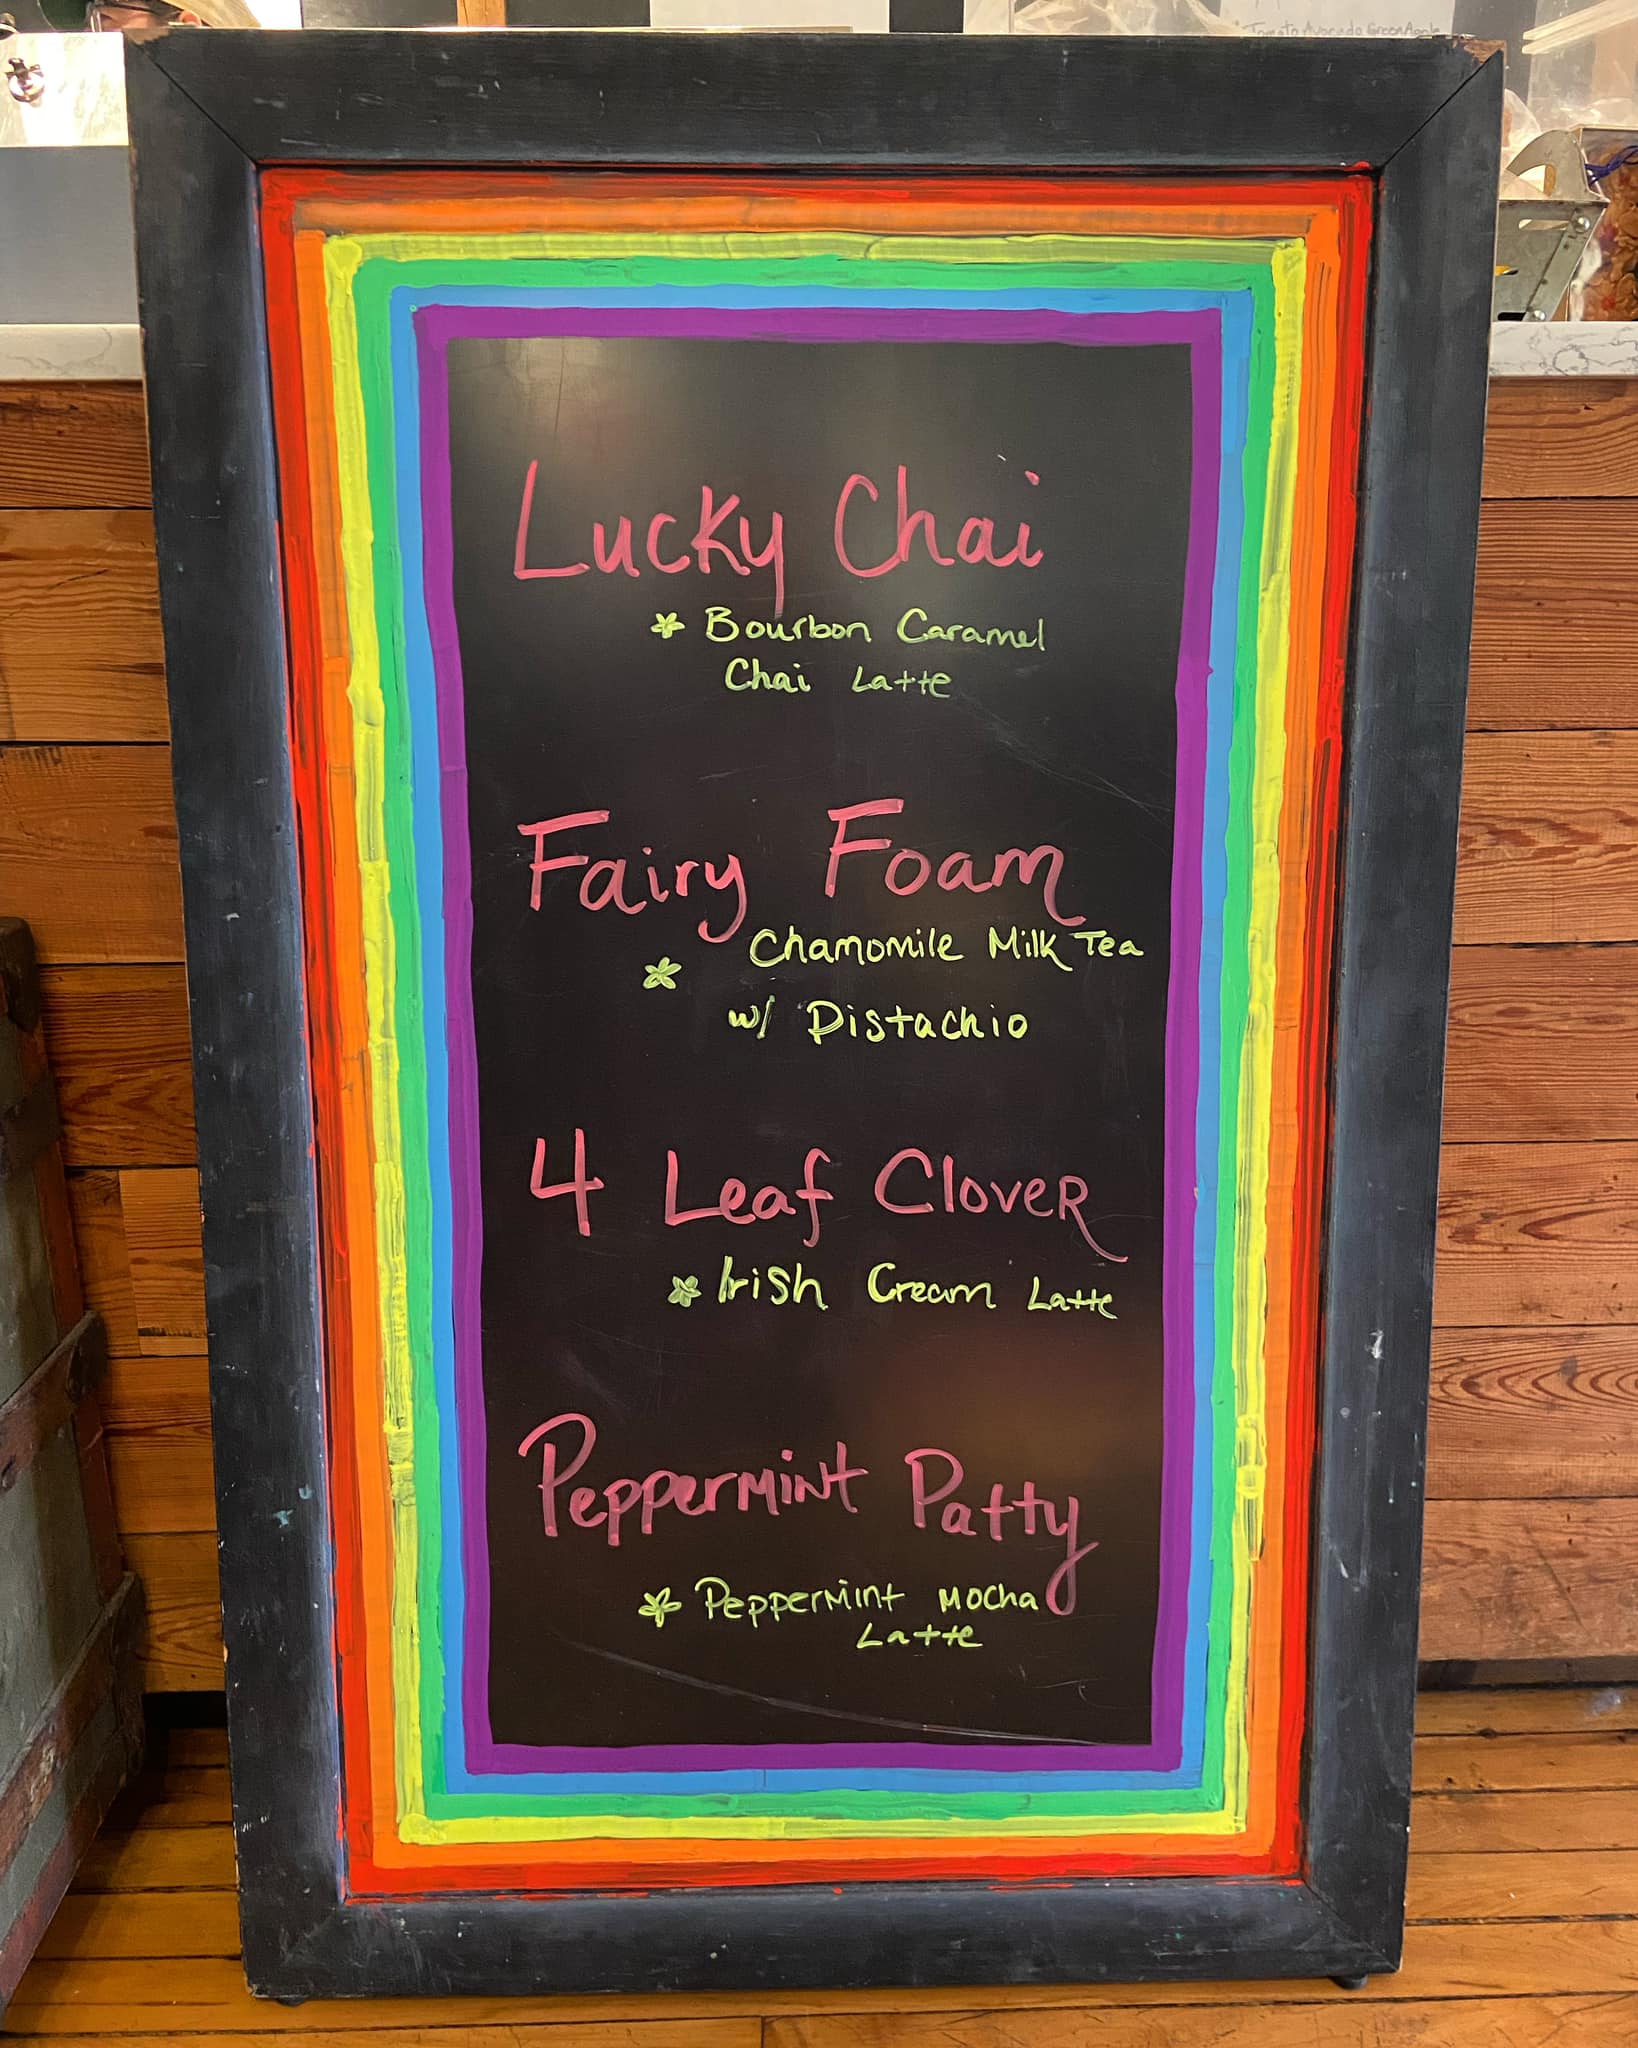 Tomato Avocado Green Apple
Lucky Chai
Bourbon Caramel
Chai Latte
Fairy Foam
Chamomile Milk Tea
w/ Pistachio
4 Leaf Clover
Irish Cream Latte
Peppermint Patty
Peppermint Mocha
Latte